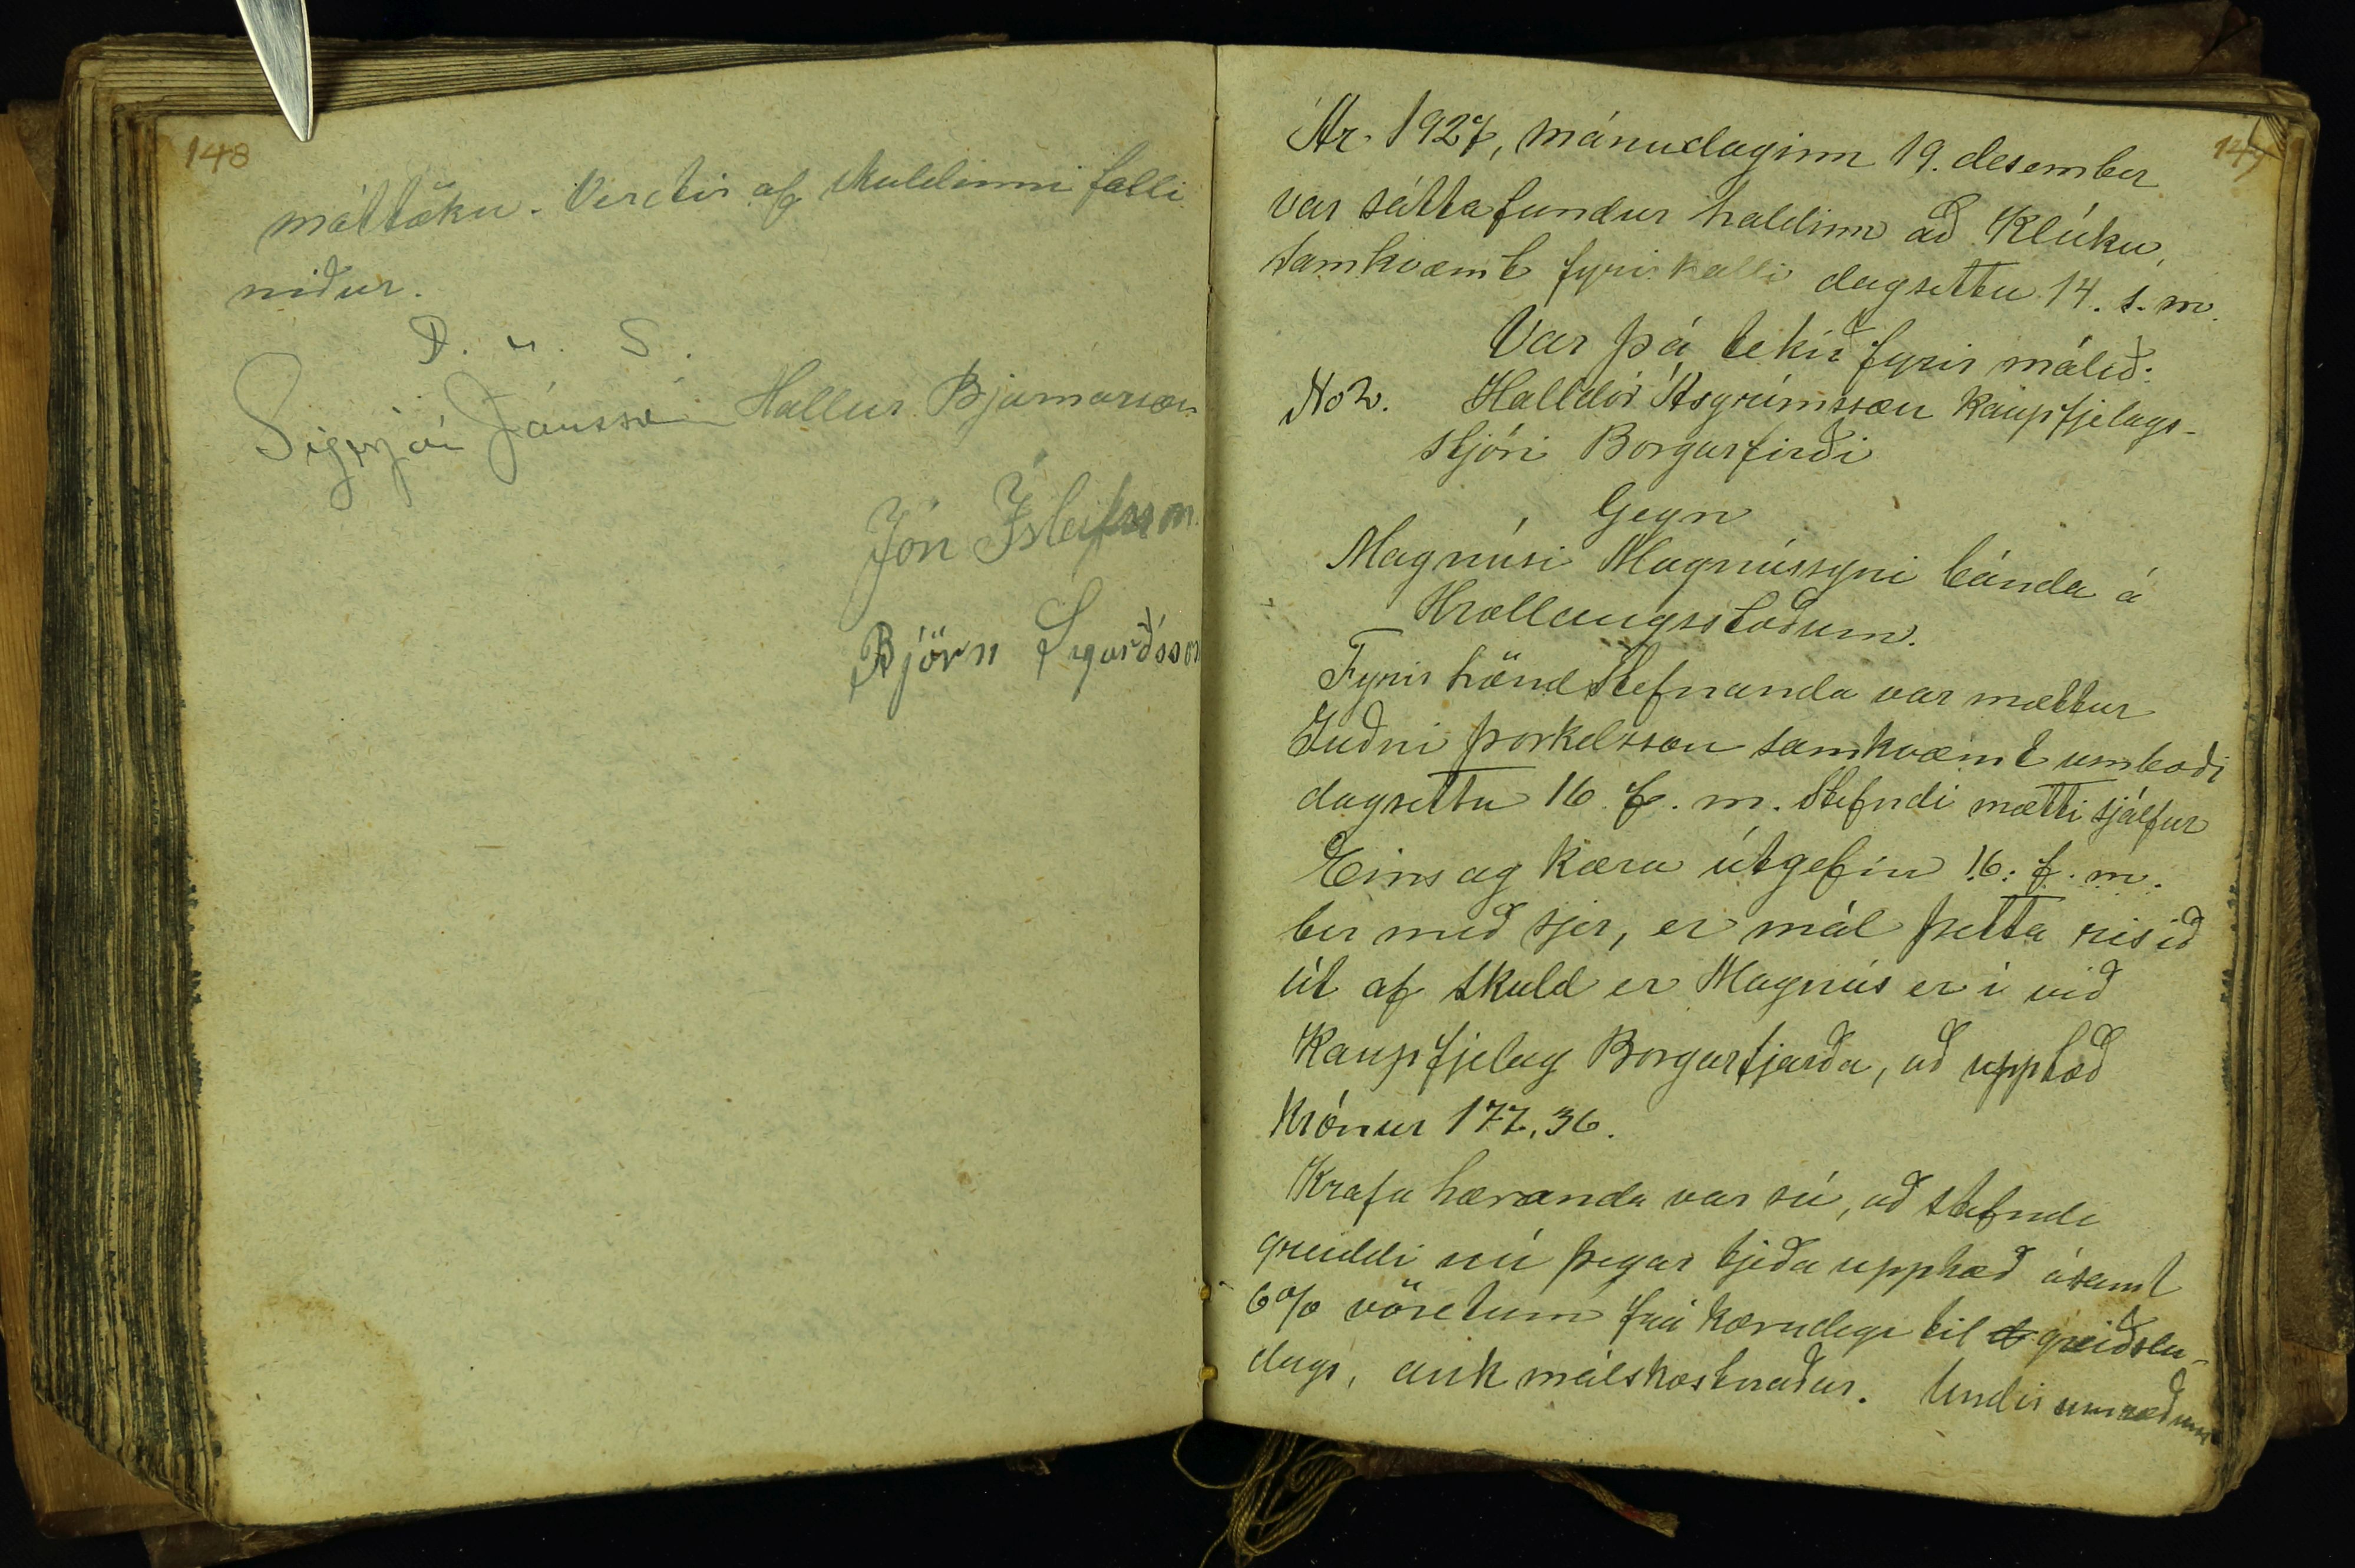 148
móttöku. Vextir af skuldinni falli
niður.
D. u. S.
Sigurjón Jónsson Hallur Bjarnarson
Jón Ísleifsson
Björn Sigurðsson
147
Ár 1927, mánudaginn 19. desember
var sáttafundur haldinn að Klúku,
samkvæmt fyrirkalli dagsettu 14. s. m.
Var þá tekið fyrir málið:
No 2. Halldór Ásgrímsson kaupfjelags-
stjóri Borgarfirði
Gegn
Magnúsi Magnússyni bónda á
Hrollaugsstöðum.
Fyrir hönd Stefnanda var mættur
Guðni Þorkelsson samkvæmt umboði
dagsettu 16. f. m. Stefndi mætti sjálfur
Eins og kæra útgefin 16. f. m.
ber með sjer, er mál þetta risið
út af skuld er Magnús er í við
Kaupfjelag Borgarfjarða, að upphæð
Krónur 177,36.
Krafa kæranda var sú, að stefndi
greiddi nú þegar tjeða upphæð ásamt
6% vöxtum frá kærudegi til greiðslu-
dags, auk málskostnaðar. Undir umræðum